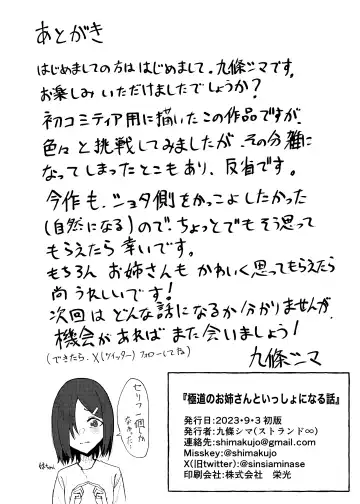 あとがき
はじめましての方ははじめまして。九條シマです。
お楽しみいただけましたでしょうか？
初コミティア用に描いたこの作品ですが、
色々と挑戦してみましたが、その分雑に
なってしまったとこもあり、反省です。
今作も、ショタ側をかっこよしたかった
(自然になる)ので、ちょっとでもそう思って
もらえたら幸いです。
もちろんお姉さんもかわいく思ってもらえたら
尚うれしいです！
次回はどんな話になるか分かりませんが、
機会があればまた会いましょう！
(できたら、X(ツイッター)フォローしてね)
九條シマ
セリフ一個しか
なかった。
『極道のお姉さんといっしょになる話』
発行日:2023・9・3 初版
発行者:九條シマ(ストランド∞)
連絡先:shimakujo@gmail.com
Misskey:@shimakujo
X(旧twitter):@sinsiaminase
印刷会社:株式会社　栄光